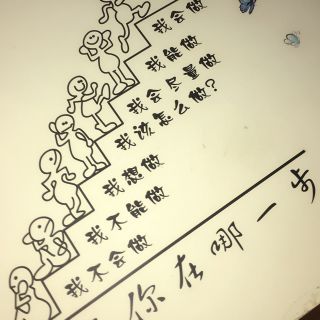 我会做
我能做
我会尽量做
我该怎么做?
我想做
我不能做
我不会做
你在哪一步